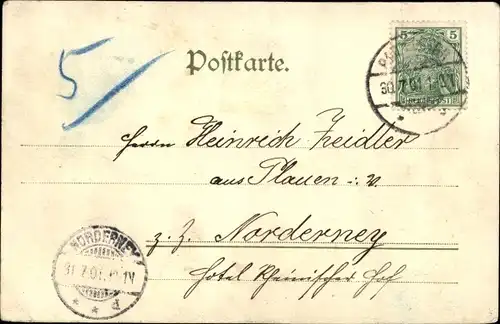 5
Postkarte.
5 5
30.7.01.
Herrn Heinrich Zeidler
aus Plauen i. V.
z. Z. Norderney
Hotel Rheinischer Hof
NORDERNEY
31.7.01.